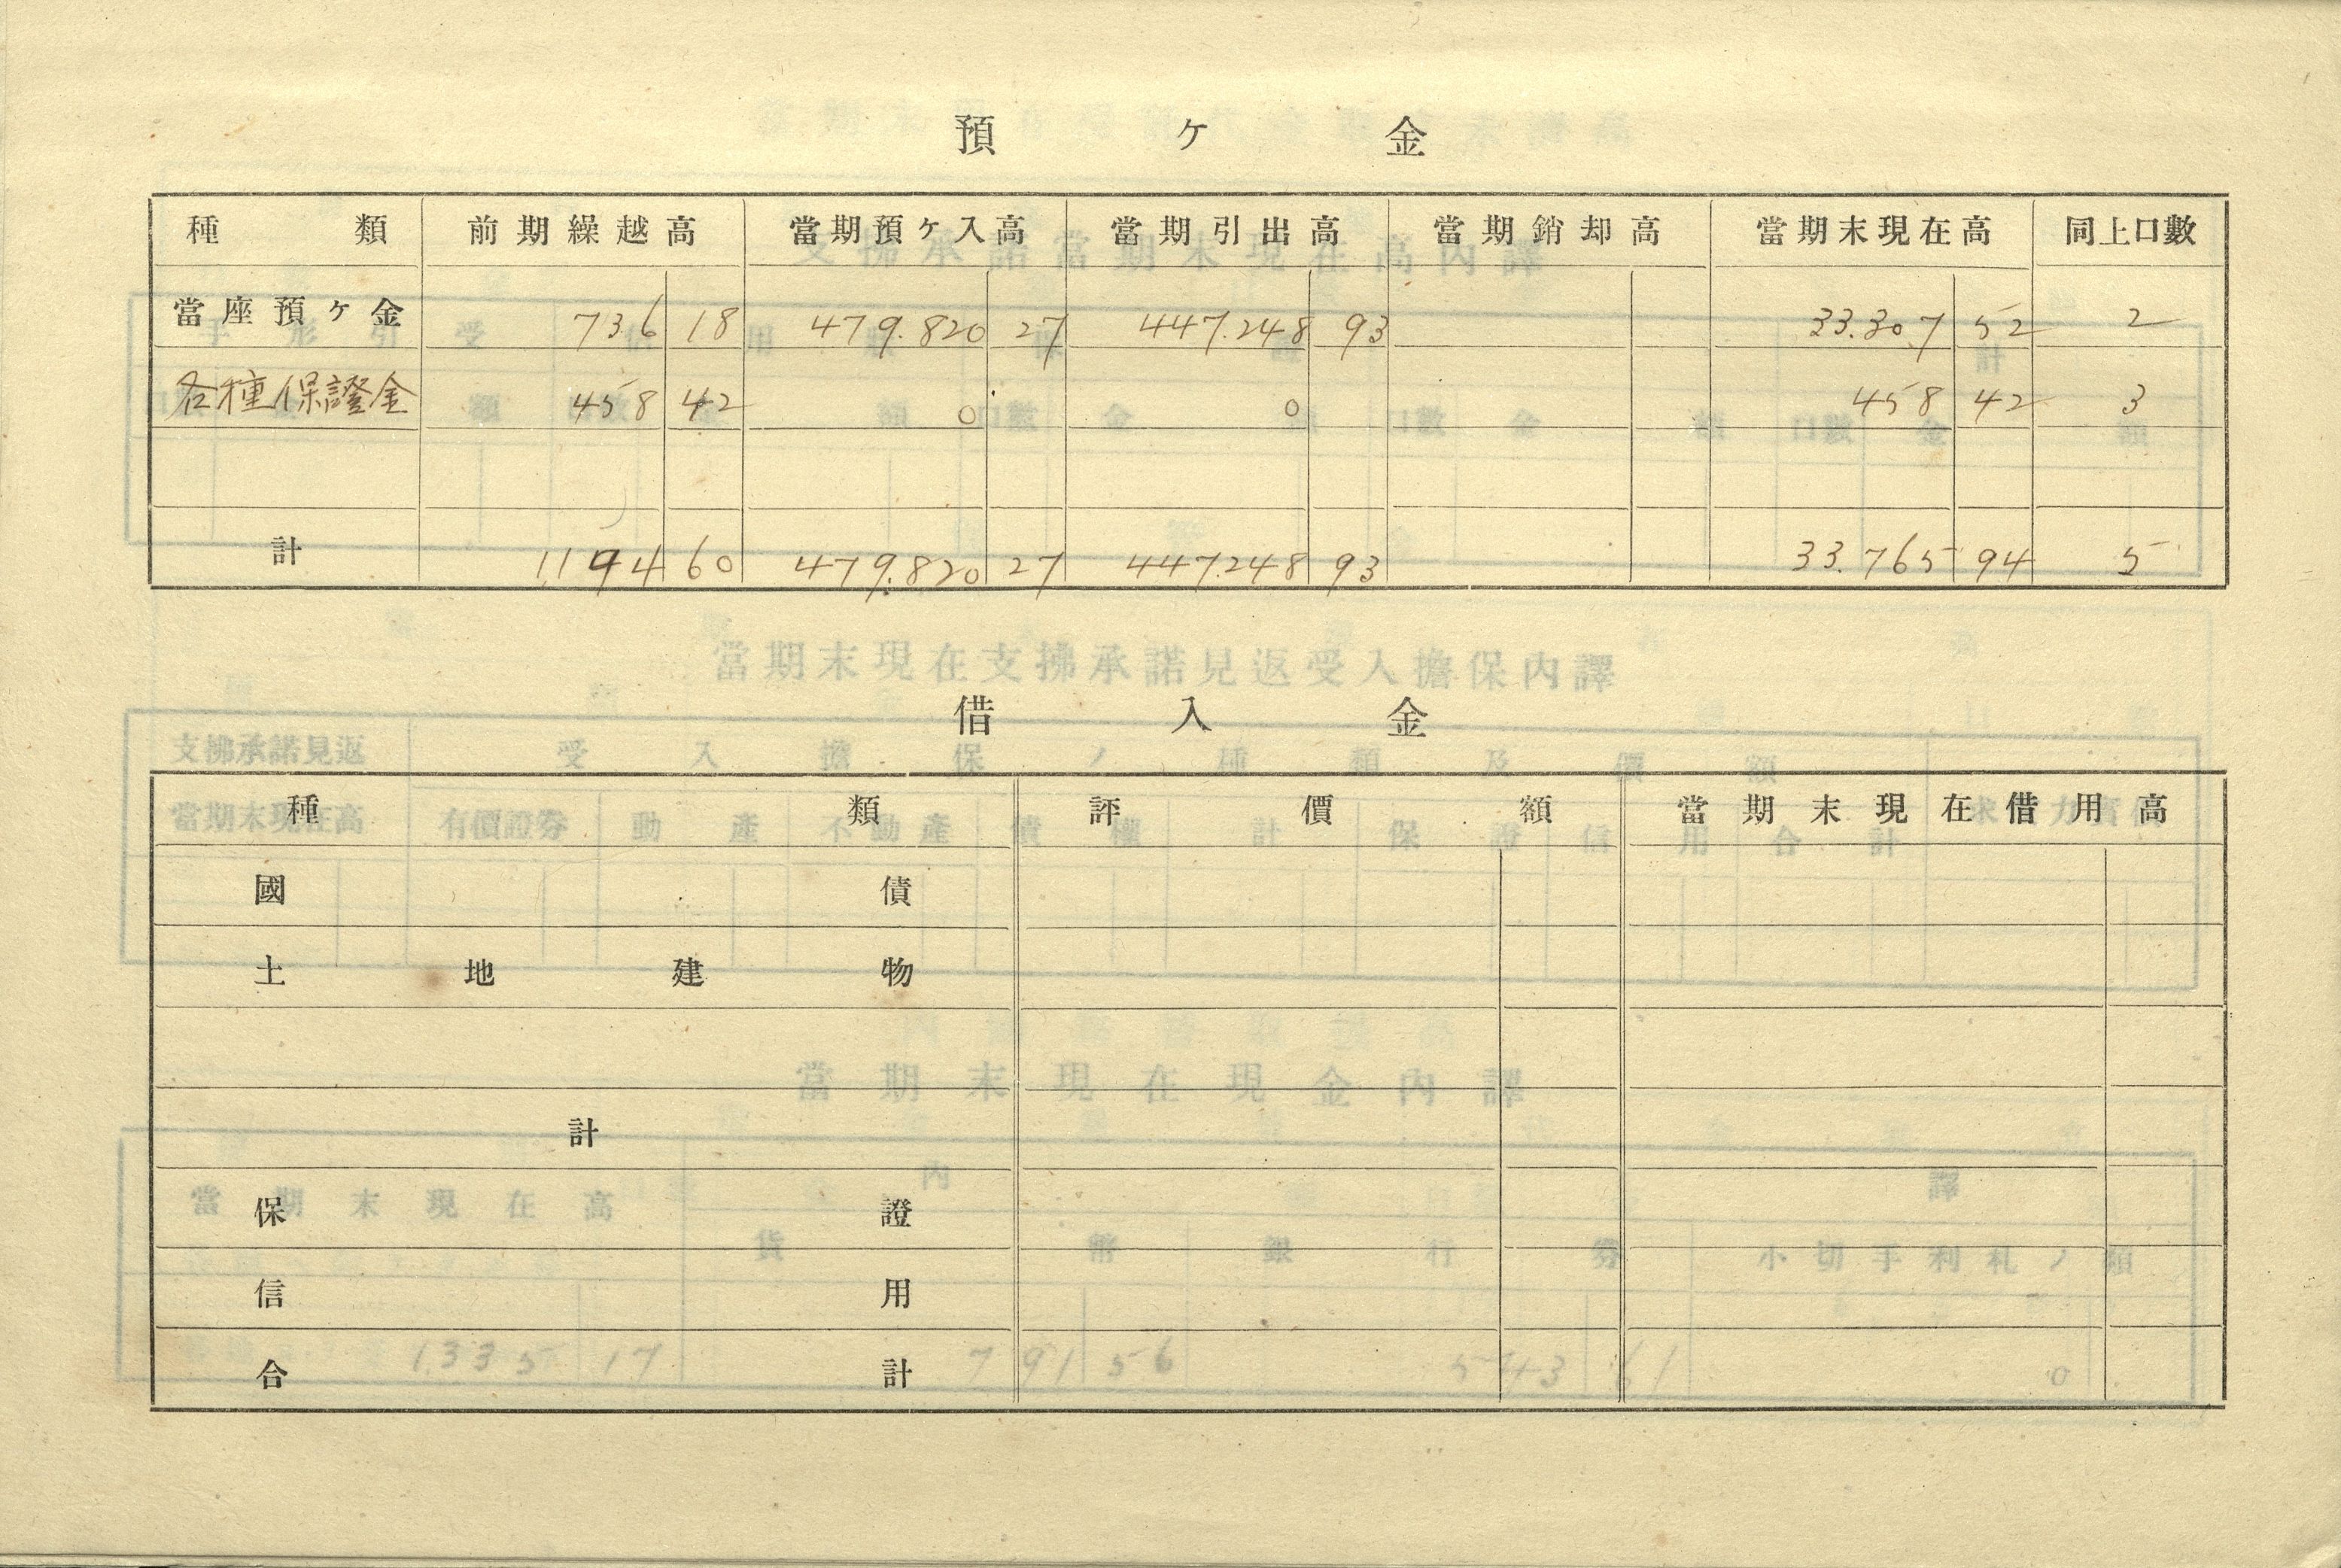 預ケ金
種類 前期繰越高 當期預ケ入高 當期引出高 當期銷却高 當期末現在高 同上口數
當座預ケ金 736 18 479.820 27 447.248 93 33.307 52 2
各種保證金 458 42 0 0 458 42 3
計 1,194 60 479.820 27 447.248 93 33.765 94 5
借入金
種類 評價額 當期末現在借用高
國債
土地建物
計
保證
信用
合計